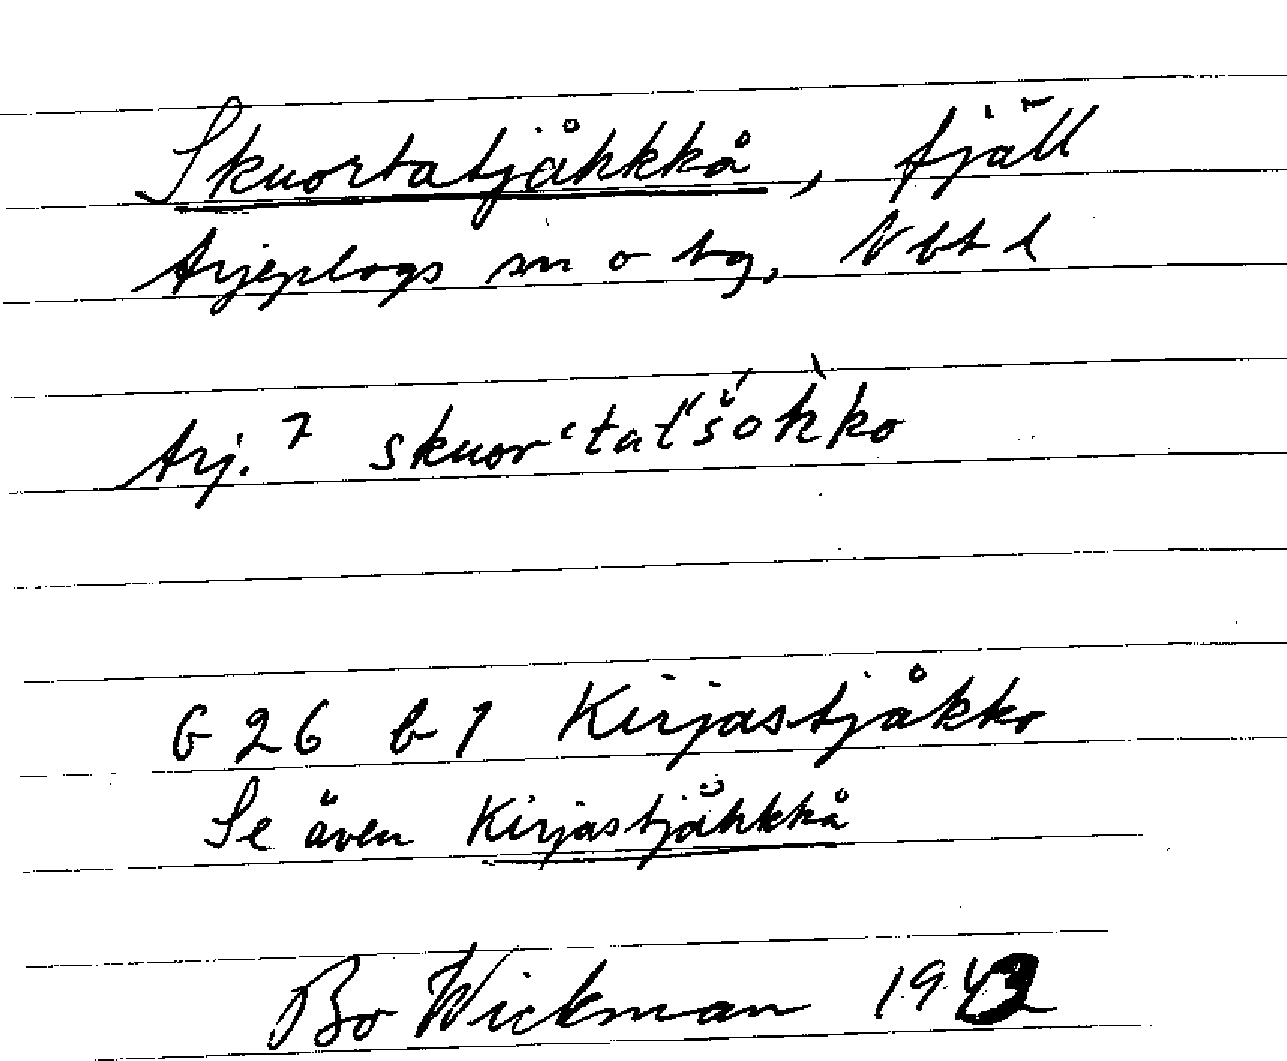 Skuortatjåhkkå, fjäll
Arjeplogs sn o tg, Nbt l
Arj. 7 skuor‘tat́šohkko
G 26 b 1 Kirjastjåkko
Se även Kirjastjåhkkå
Bo Wickman 1943